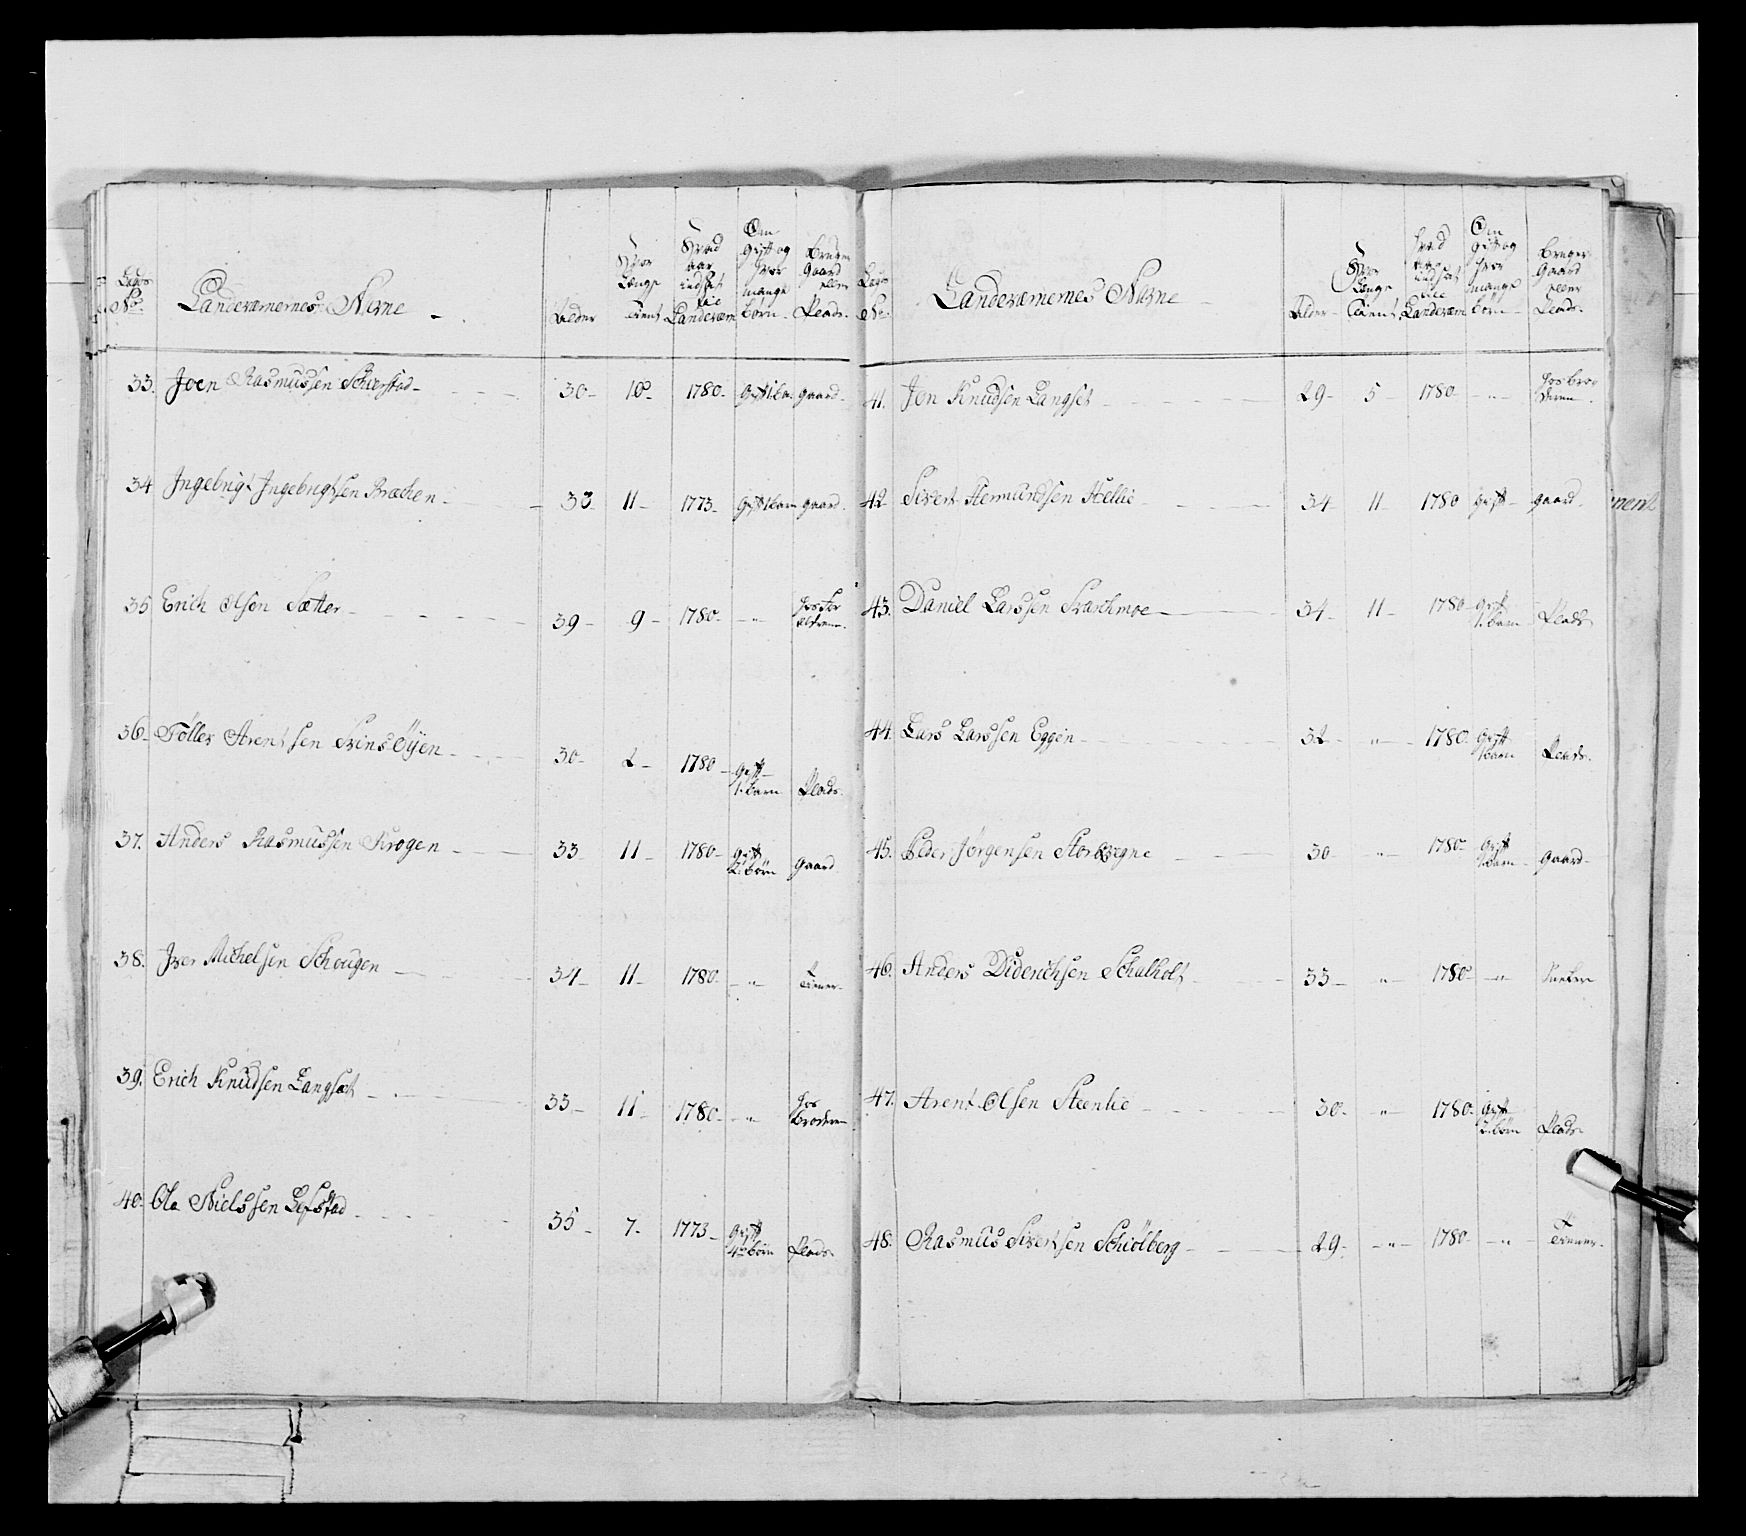 Laugs No. Landeværnernes Navne Alder Hvor Længe Tient Hvad aar indsat til Landeværn Om Gift og hvor mange børn Bruger Gaard eller Plads
33. Joen Rasmussen Schierstad 30 10 1780 Gift 1 barn gaard
34 Ingebrigt Ingebrigtsen Bræchen 33 11 1773 Gift 1 barn gaard
35 Erich Olsen Sætter 39 9 1780 " hos Forældrene
36 Töller Arentsen Svinsöÿen 30 2 1780 Gift 1. barn Plads
37. Anders Rasmussen Krogen 33 11 1780 Gift 2. börn gaard
38. Iver Michelsen Schougen 34 11 1780 " Tiener
39. Erich Knudsen Langsæt 33 11 1780 " hos Broderen
40. Ola Nielssen Lefstad 35 7 1773 Gift 4 börn Plads
Laugs No. Landeværnernes Navne Alder Hvor Længe Tient Hvad aar indsat til Landeværn Om Gift og hvor mange børn Bruger Gaard eller Plads
41. Jon Knudsen Langset 29 5 1780 " hos broderen
42 Sivert Hermundsen Hellie 34 11 1780 Gift gaard
43. Daniel Larssen Svarthmoe 34 11 1780 Gift 1. barn Plads
44. Lars Larssen Eggen 32 " 1780 Gift 1 barn Plads
45. Peder Jörgensen Storvegne 30 " 1780 Gift 1 barn gaard
46. Anders Diderichsen Schalholt 33 " 1780 "
47. Arent Olsen Steenlie 30 " 1780 Gift 2. börn Plads
48. Rasmus Sivertsen Schiölberg 29 " 1780 " Tiener